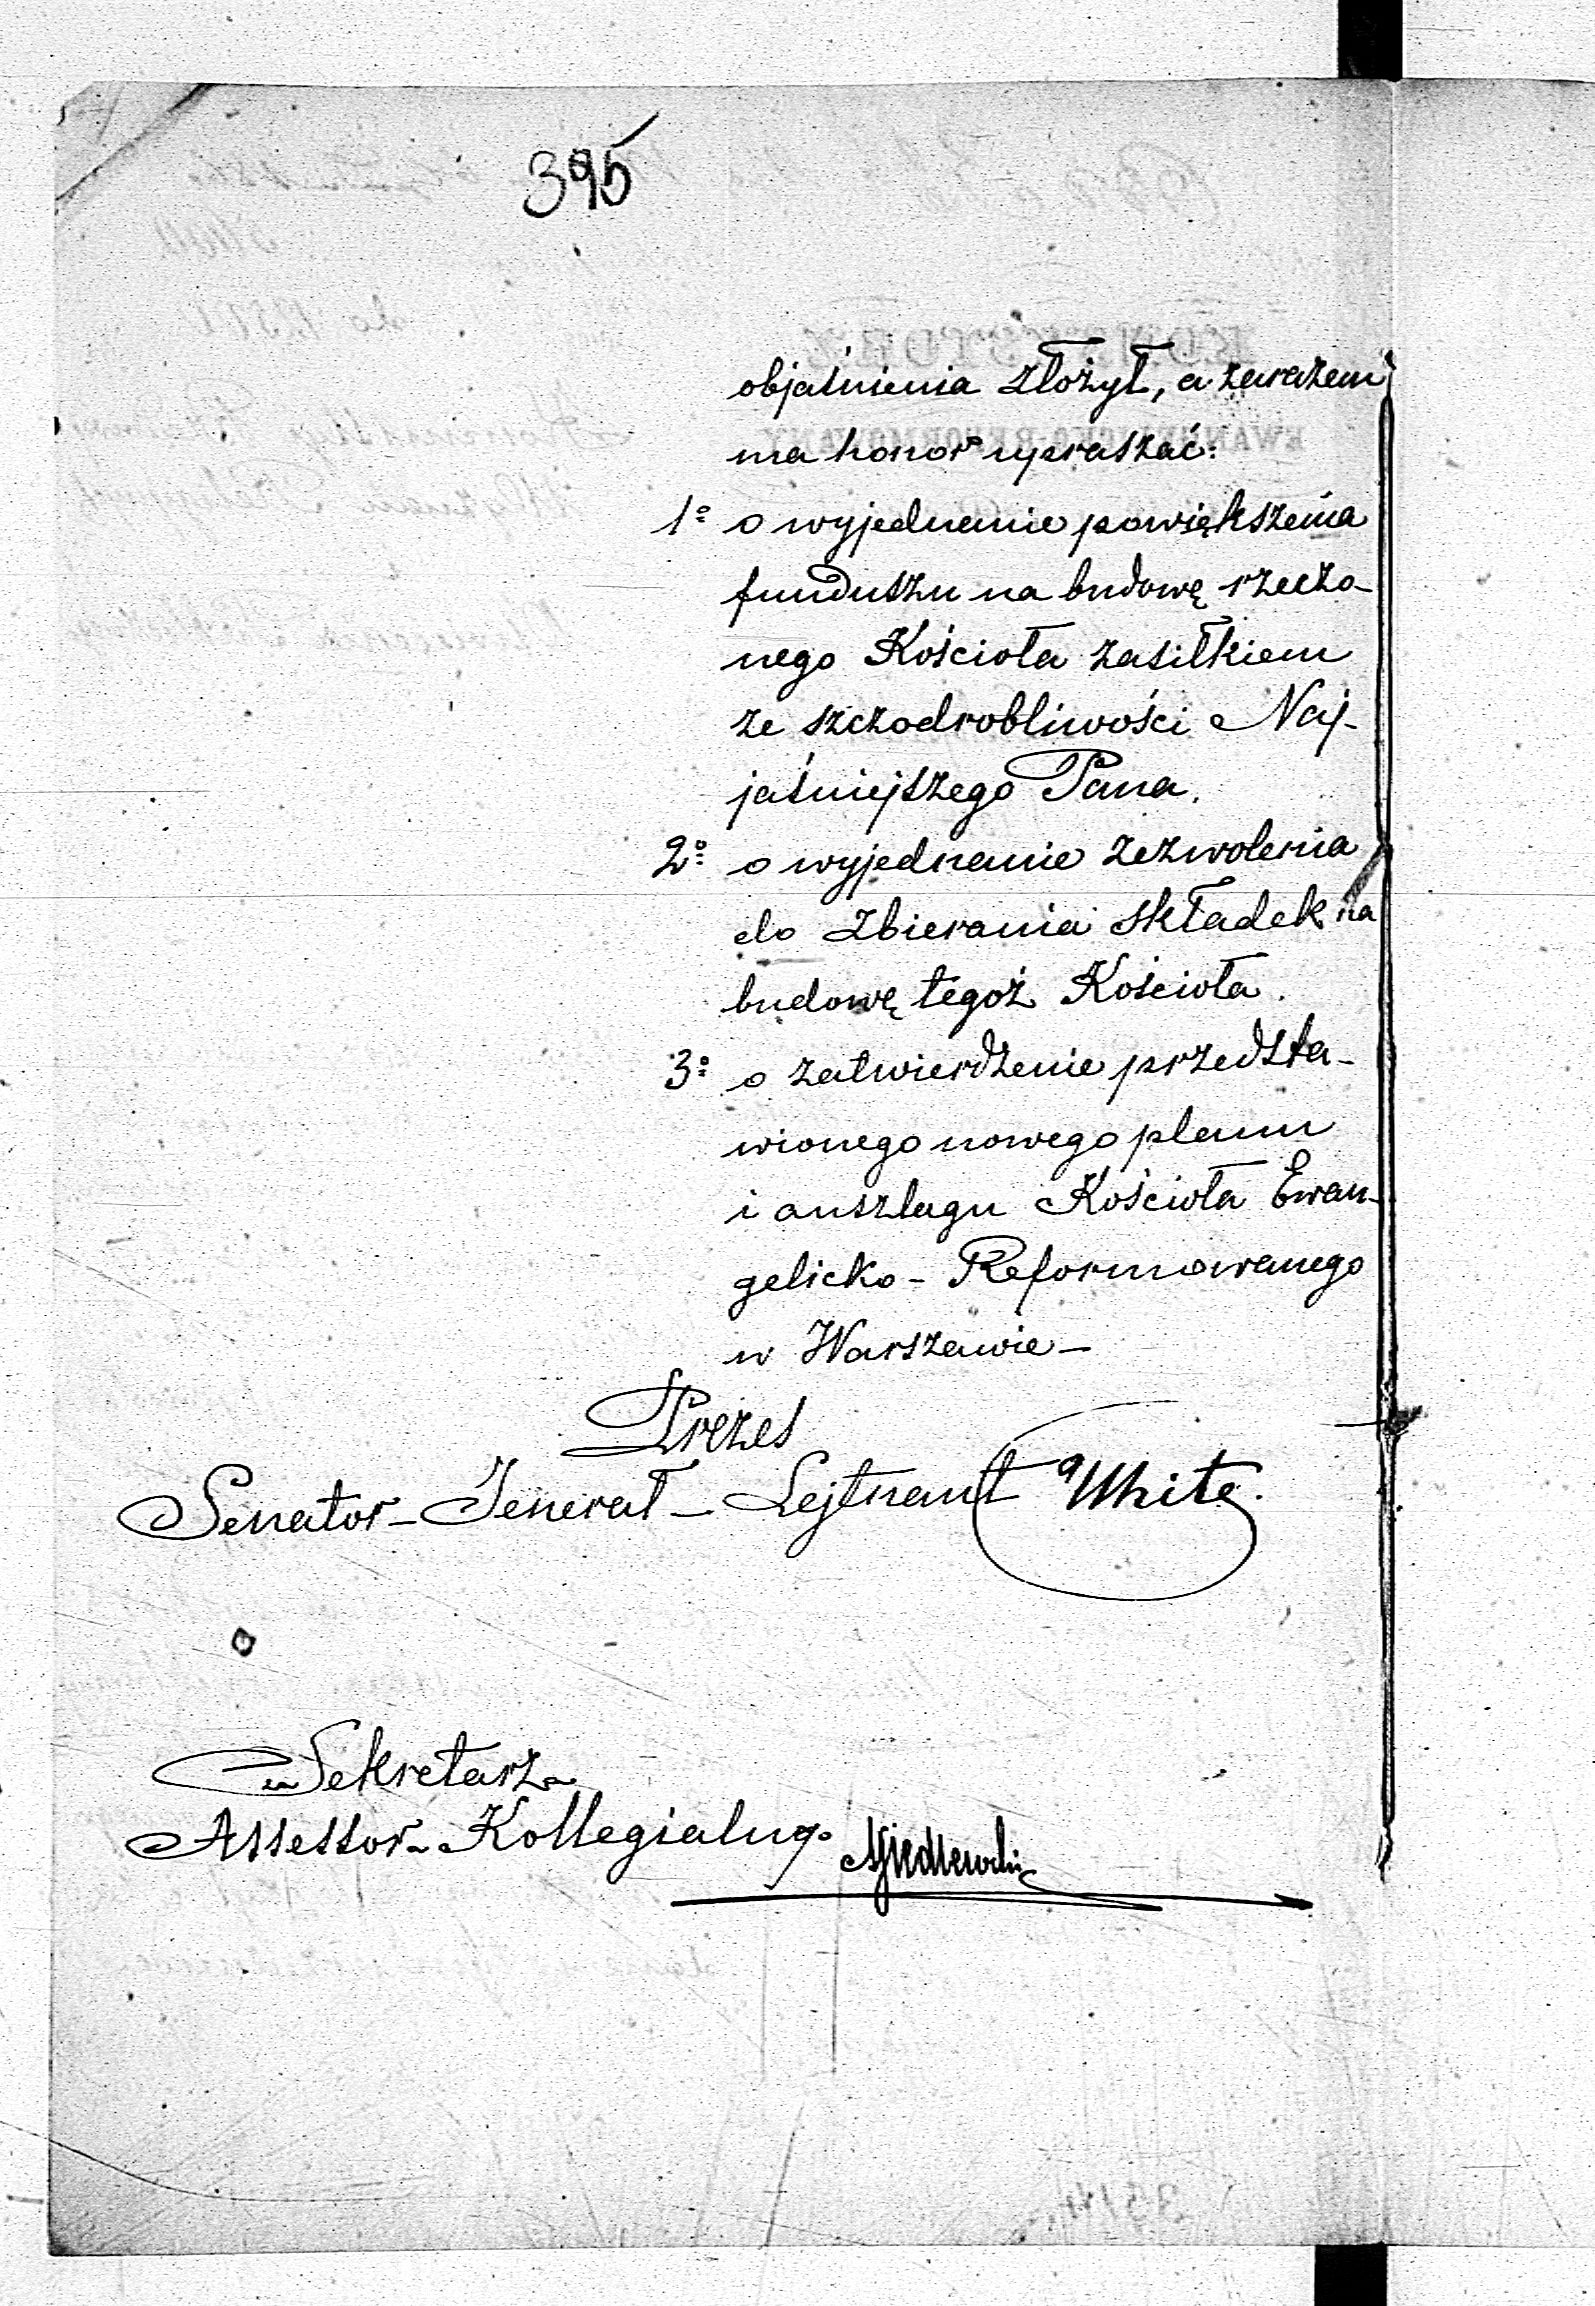 395
objaśnienia złożył, a zarazem
ma honor upraszać:
1º o wyjednanie powiększenia
funduszu na budowę rzeczo-
nego Kościoła zasiłkiem
ze szczodrobliwości Naj-
jaśniejszego Pana.
2º o wyjednanie zezwolenia
do zbierania składek na
budowę tegoż Kościoła.
3º o zatwierdzenie przedsta-
wionego nowego planu
i anszlagu Kościoła Ewan-
gelicko-Reformowanego
w Warszawie-
Prezes
Senator-Jenerał-Lejtnant White.
Sekretarz
Assessor Kollegialny